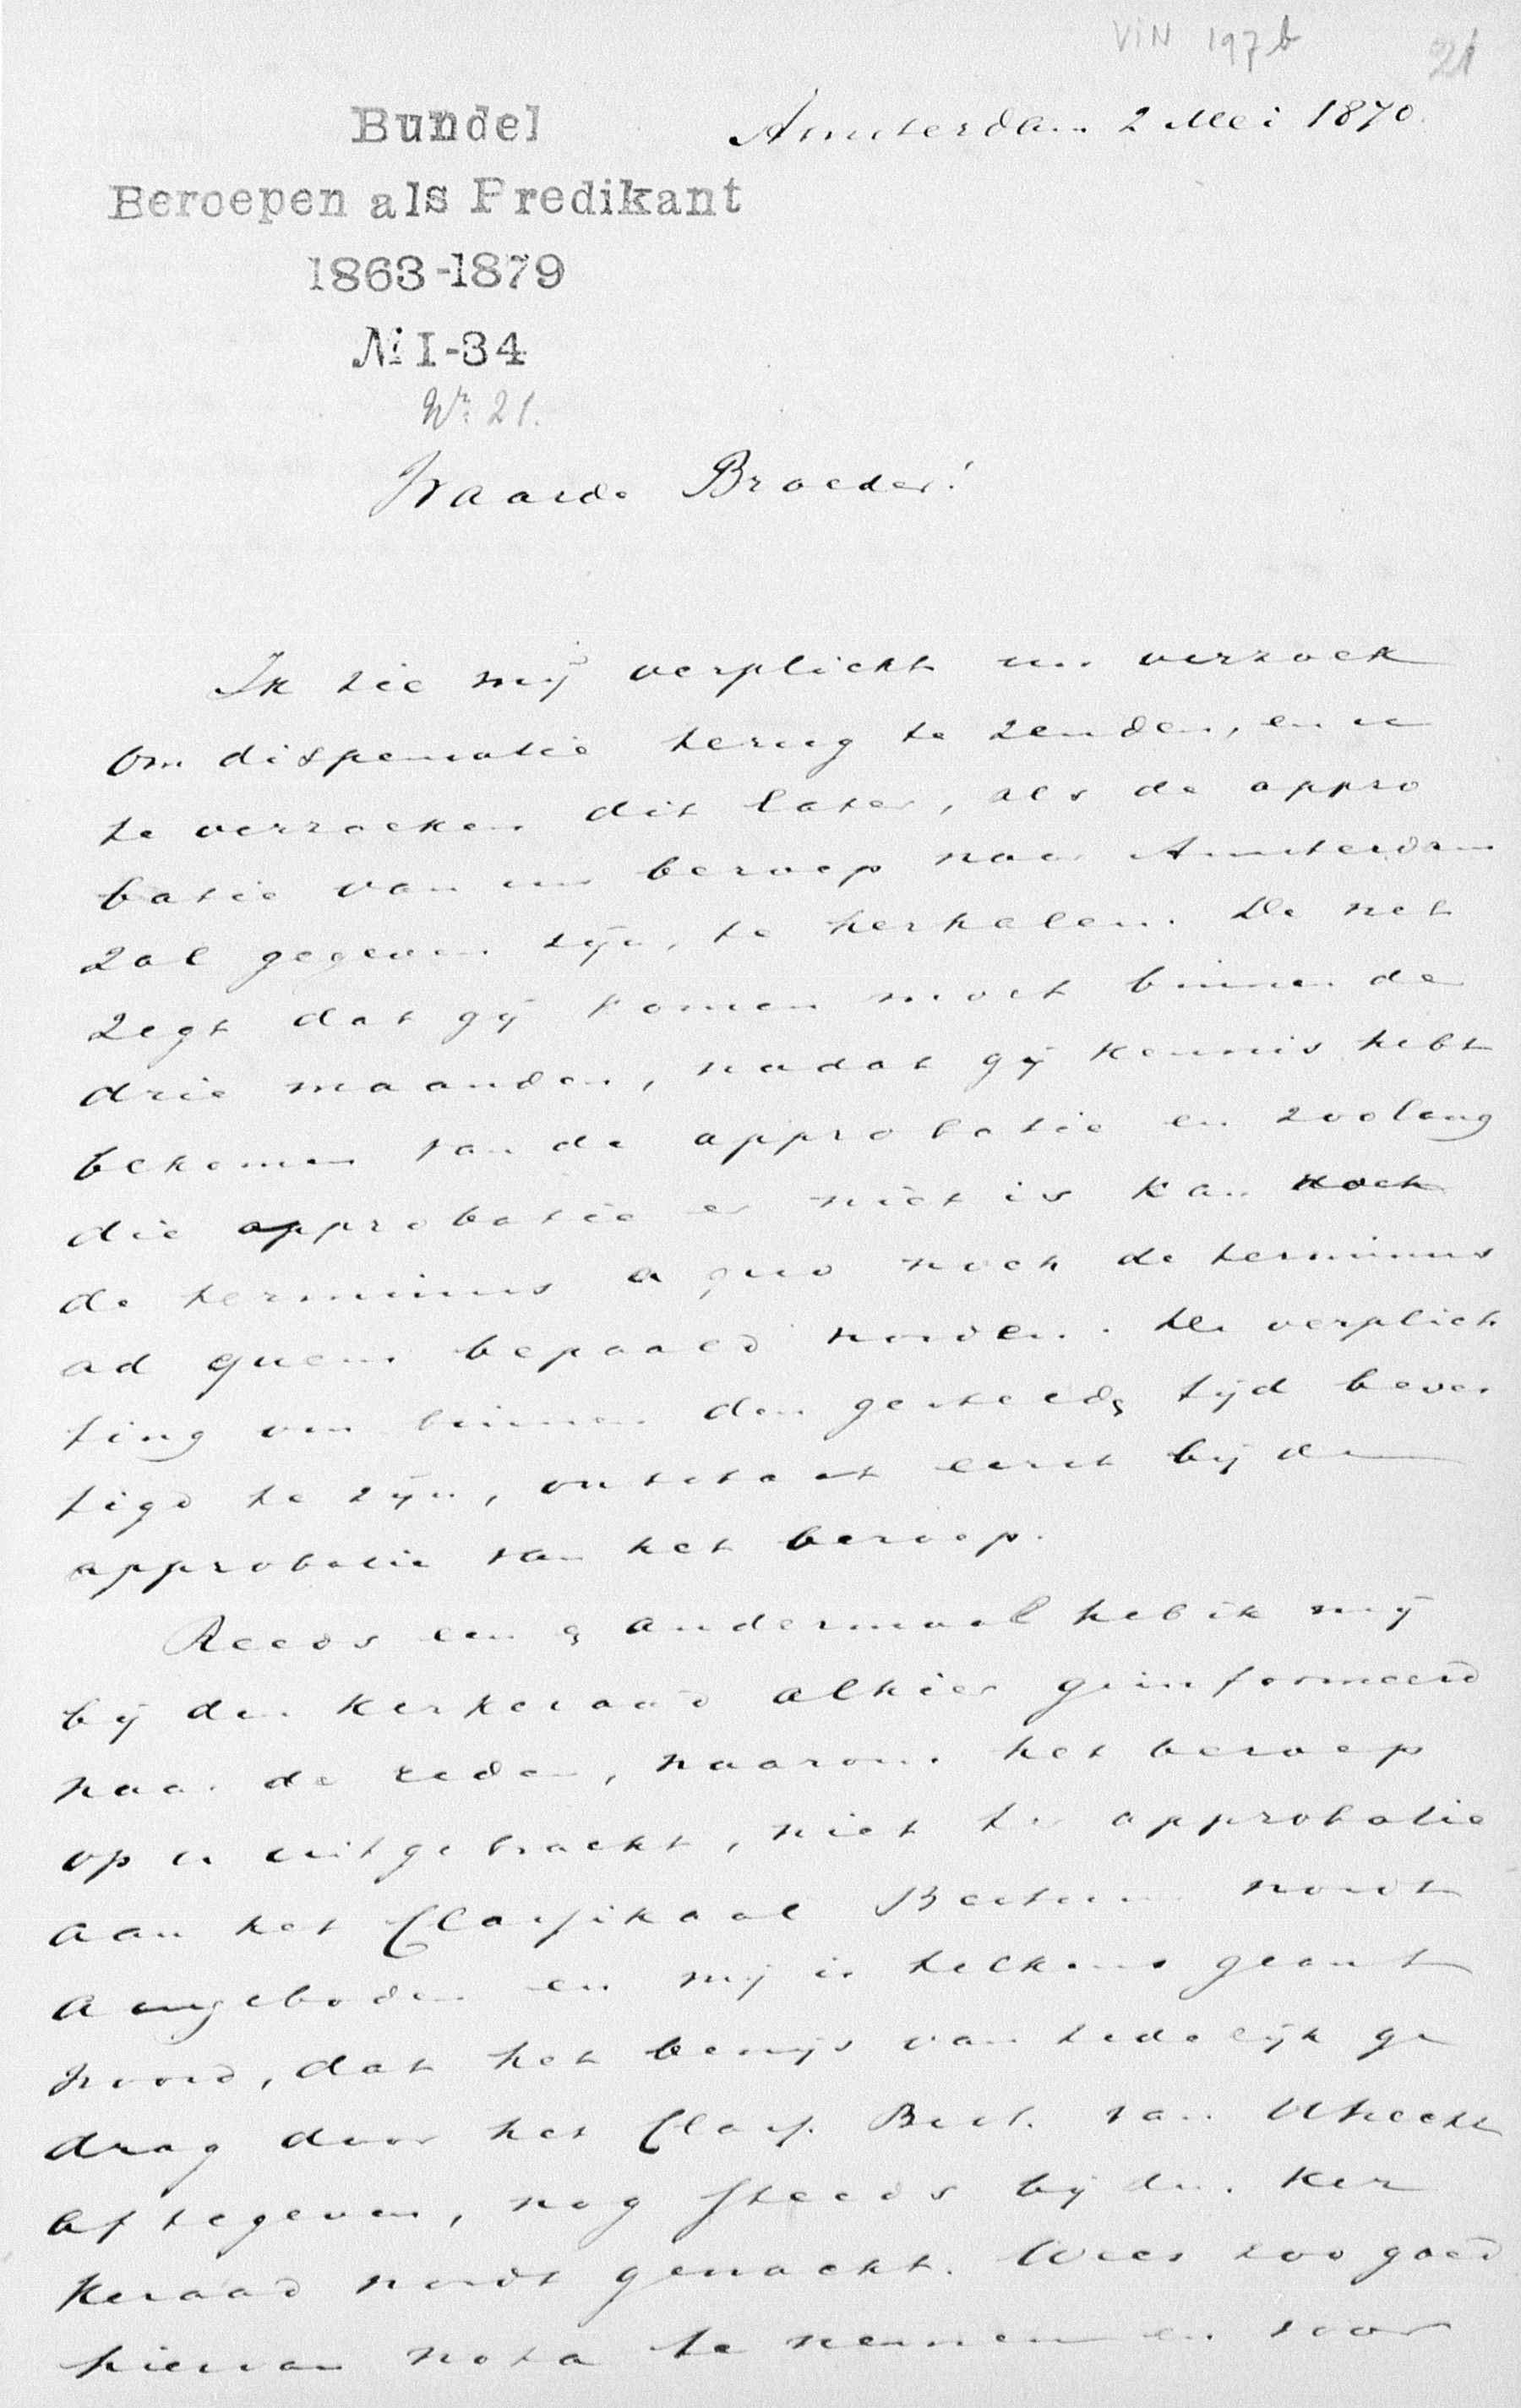 VIN 197b
21
Bundel
Amsterdam 2 Mei 1870.
Beroepen als Predikant
1863-1879
No I-34
Nr. 21.
Waarde Broeder!
Ik zie mij verplicht uw verzoek
om dispensatie terug te zenden, en u
te verzoeken dit later, als de appro
batie van uw beroep naar Amsterdam
zal gegeven zijn, te herhalen. De wet
zegt dat gij komen moet binnen de
drie maanden, nadat gij kennis hebt
bekomen van de approbatie en zoolang
die approbatie er niet is kan noch
de terminus a quo noch de terminus
ad quem bepaald worden. De verplich
ting om binnen den gestelde tijd beves
tigd te zijn, ontstaat eerst bij de
approbatie van het beroep.
Reeds een & andermaal heb ik mij
bij den kerkeraad alhier geinformeerd
naar de reden, waarom het beroep
op u uitgebracht, niet ter approbatie
aan het Classikaal Bestuur wordt
aangeboden en mij is telkens geant
woord, dat het bewijs van zedelijk ge
drag door het Class. Best. van Utrecht
af te geven, nog steeds bij den ker
keraad wordt gewacht. Wees zoo goed
hiervan nota te nemen en voor